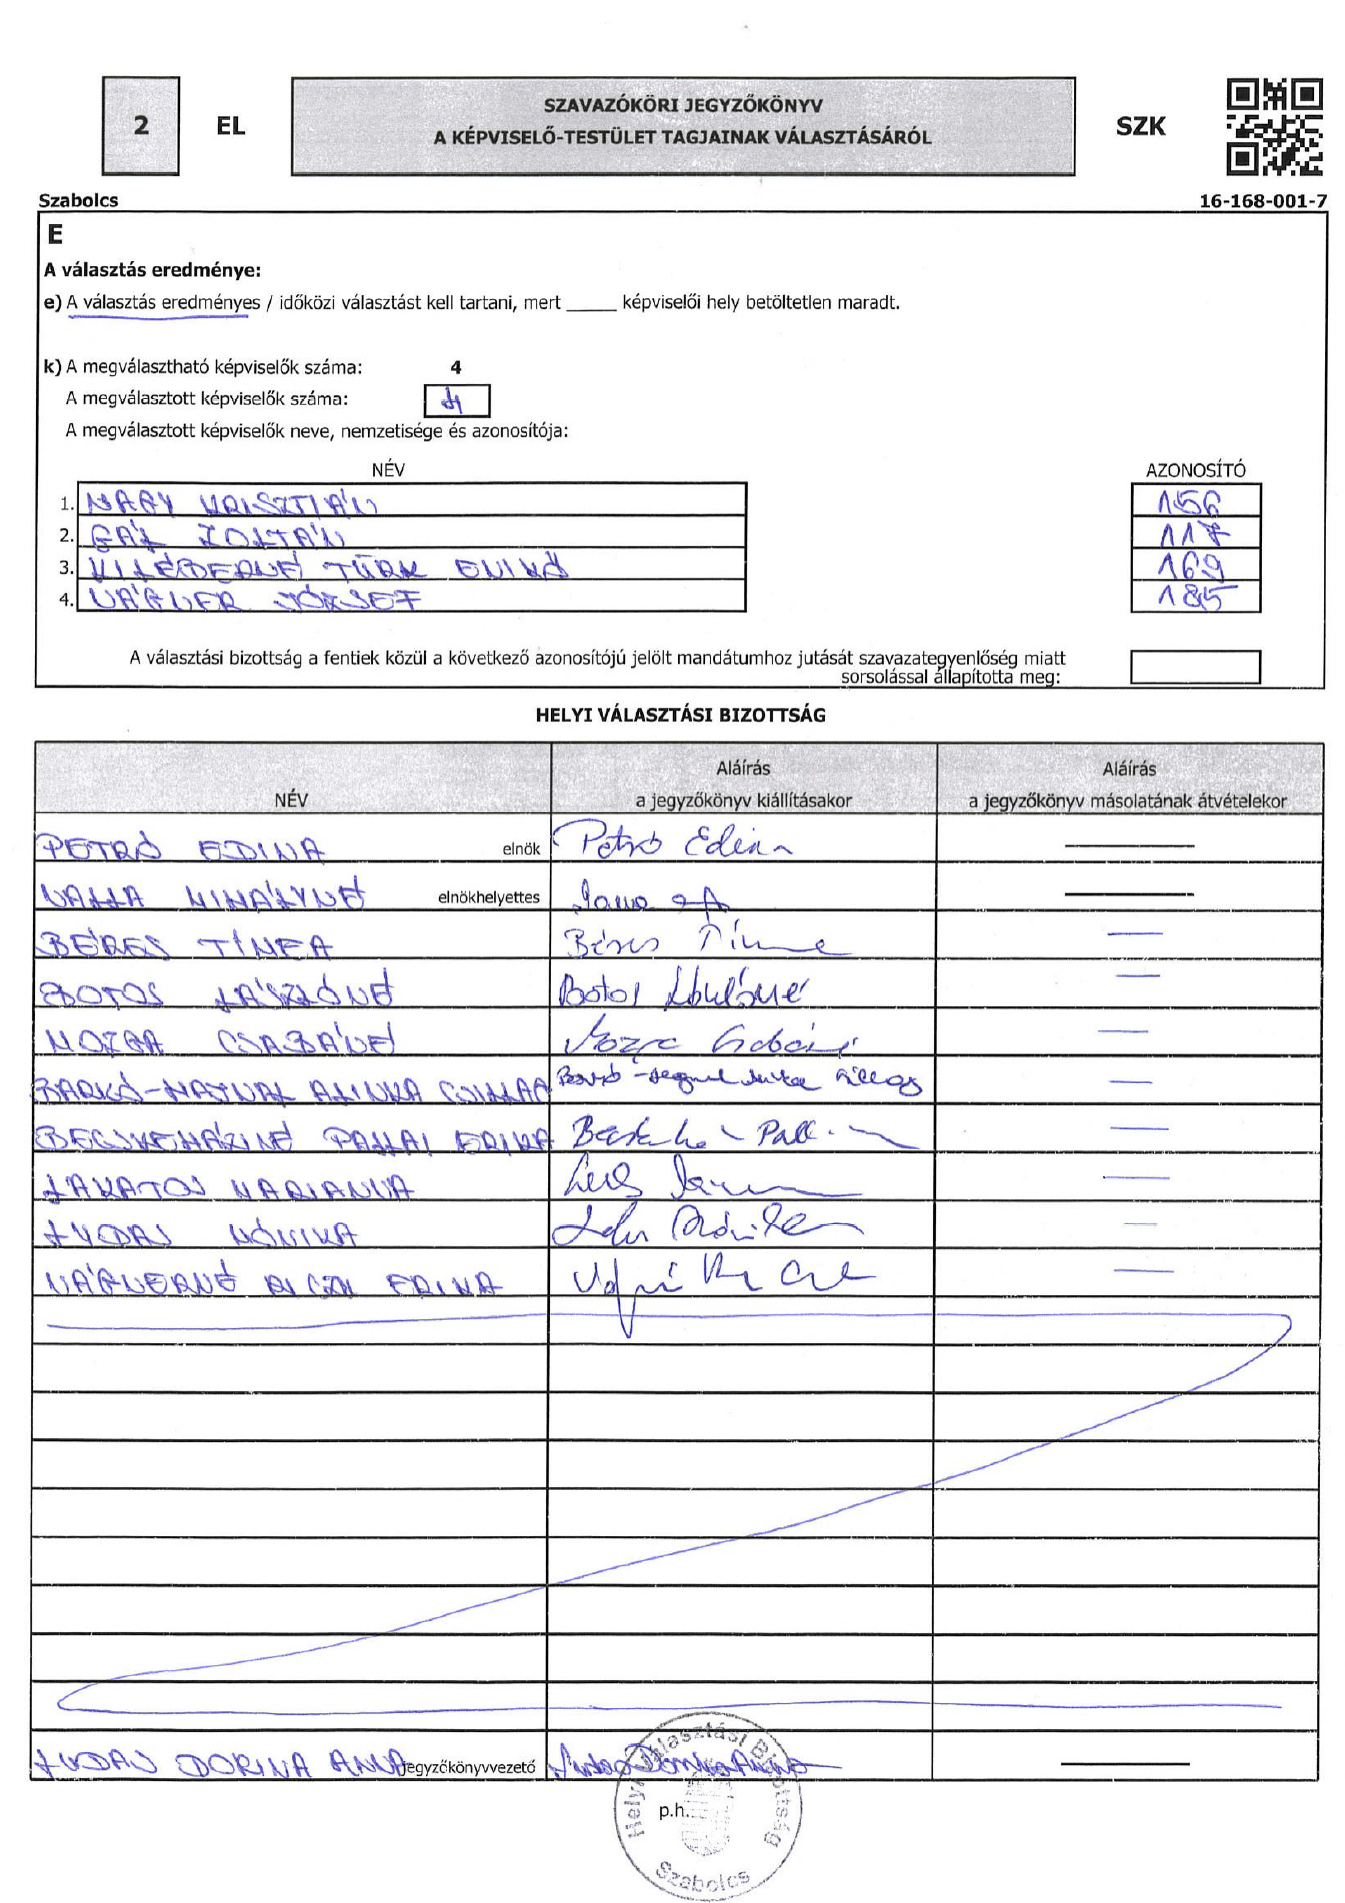 2
EL
SZAVAZÓKÖRI JEGYZŐKÖNYV
A KÉPVISELŐ-TESTÜLET TAGJAINAK VÁLASZTÁSÁRÓL
SZK
Szabolcs
16-168-001-7
E
A választás eredménye:
e) A választás eredményes / időközi választást kell tartani, mert _____ képviselői hely betöltetlen maradt.
k) A megválasztható képviselők száma: 4
A megválasztott képviselők száma: 4
A megválasztott képviselők neve, nemzetisége és azonosítója:
NÉV AZONOSÍTÓ
1. NAGY KRISZTIÁN 156
2. GÁL ZOLTÁN 117
3. TÜRK ENIKŐ 169
4. VÁGNER JÓZSEF 185
A választási bizottság a fentiek közül a következő azonosítójú jelölt mandátumhoz jutását szavazategyenlőség miatt
sorsolással állapította meg:
HELYI VÁLASZTÁSI BIZOTTSÁG
NÉV
Aláírás
a jegyzőkönyv kiállításakor
Aláírás
a jegyzőkönyv másolatának átvételekor
PETRÓ EDINA elnök Petró Edina
MIHÁLYNÉ elnökhelyettes
BÉRES TÍMEA Béres Tímea
BOTOS LÁSZLÓNÉ Botos Lászlóné
MOZGA CSABÁNÉ Mozga Csabáné
BARKÓ-HAJNAL ALINKA CSILLAG
BECSKEHÁZINÉ PALLAI ERIKA
LAKATOS MARIANNA
LUDAS MÓNIKA
VÁGNERNÉ RICZI ERIKA
LUDAS DORINA ANNA jegyzőkönyvvezető Ludas Dorina Anna
p.h.
Helyi Választási Bizottság
Szabolcs